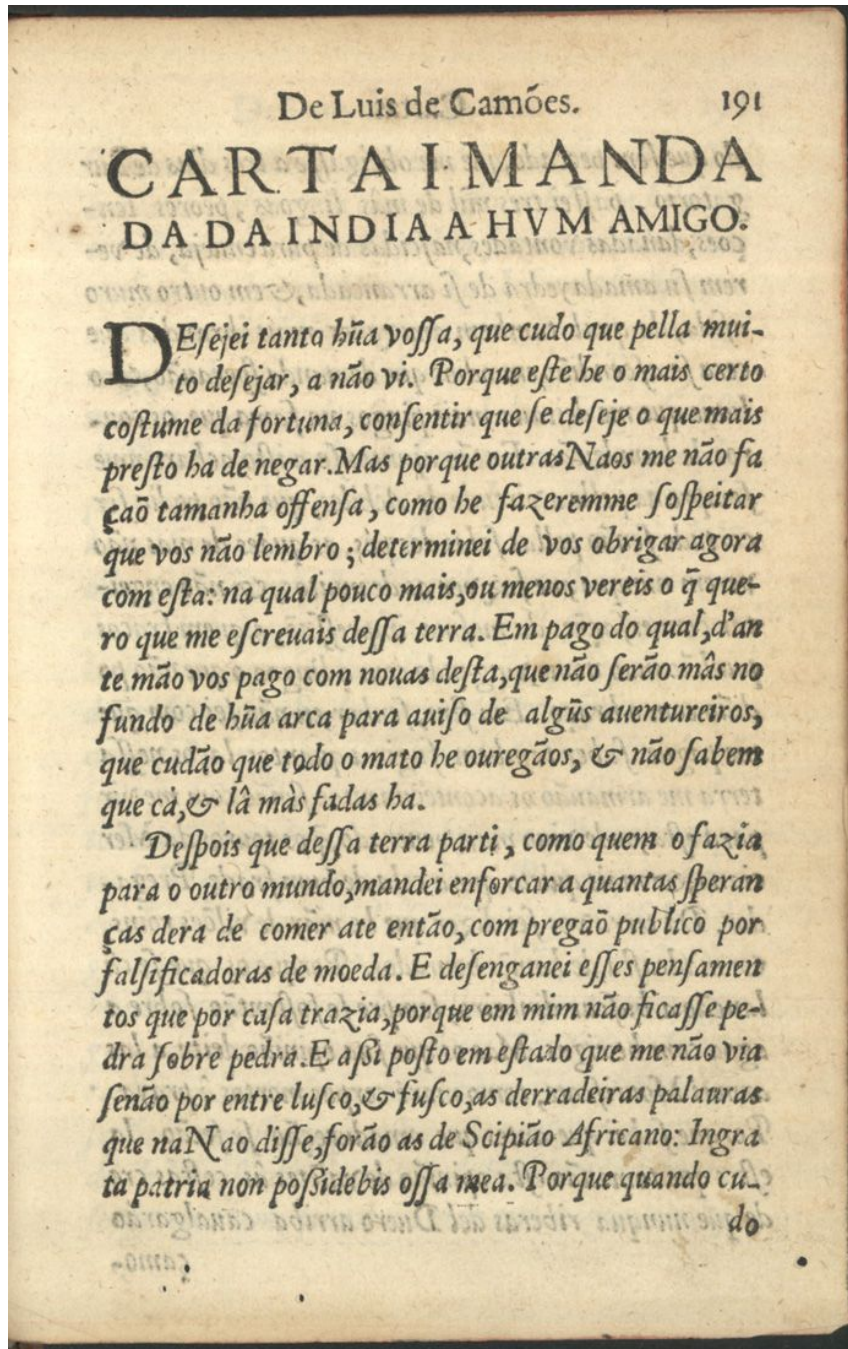 De Luis de Camões. 191
CARTA I. MANDA
DA DA INDIA A HVM AMIGO.
DEſejei tanto hũa voſſa, que cudo que pella mui-
to deſejar, a não vi. Porque eſte he o mais certo
coſtume da fortuna, conſentir que ſe deſeje o que mais
preſto ha de negar. Mas porque outras Naos me não fa
çaõ tamanha offenſa, como he fazeremme ſoſpeitar
que vos não lembro; determinei de vos obrigar agora
com eſta: na qual pouco mais, ou menos vereis o q̃ que-
ro que me eſcreuais deſſa terra. Em pago do qual, d'an
te mão vos pago com nouas deſta, que não ſerão mâs no
fundo de hũa arca para auiſo de algũs auentureiros,
que cudão que todo o mato he ouregãos, & não ſabem
que cà, & lâ màs fadas ha.
Deſpois que deſſa terra parti, como quem o fazia
para o outro mundo, mandei enforcar a quantas ſperan
ças dera de comer ate então, com pregaõ publico por
falſificadoras de moeda. E deſenganei eſſes penſamen
tos que por caſa trazia, porque em mim não ficaſſe pe-
dra ſobre pedra. E aßi poſto em eſtado que me não via
ſenão por entre luſco, & fuſco, as derradeiras palauras
que na Nao diſſe, forão as de Scipião Africano: Ingra
ta patria non poßidebis oſſa mea. Porque quando cu-
do